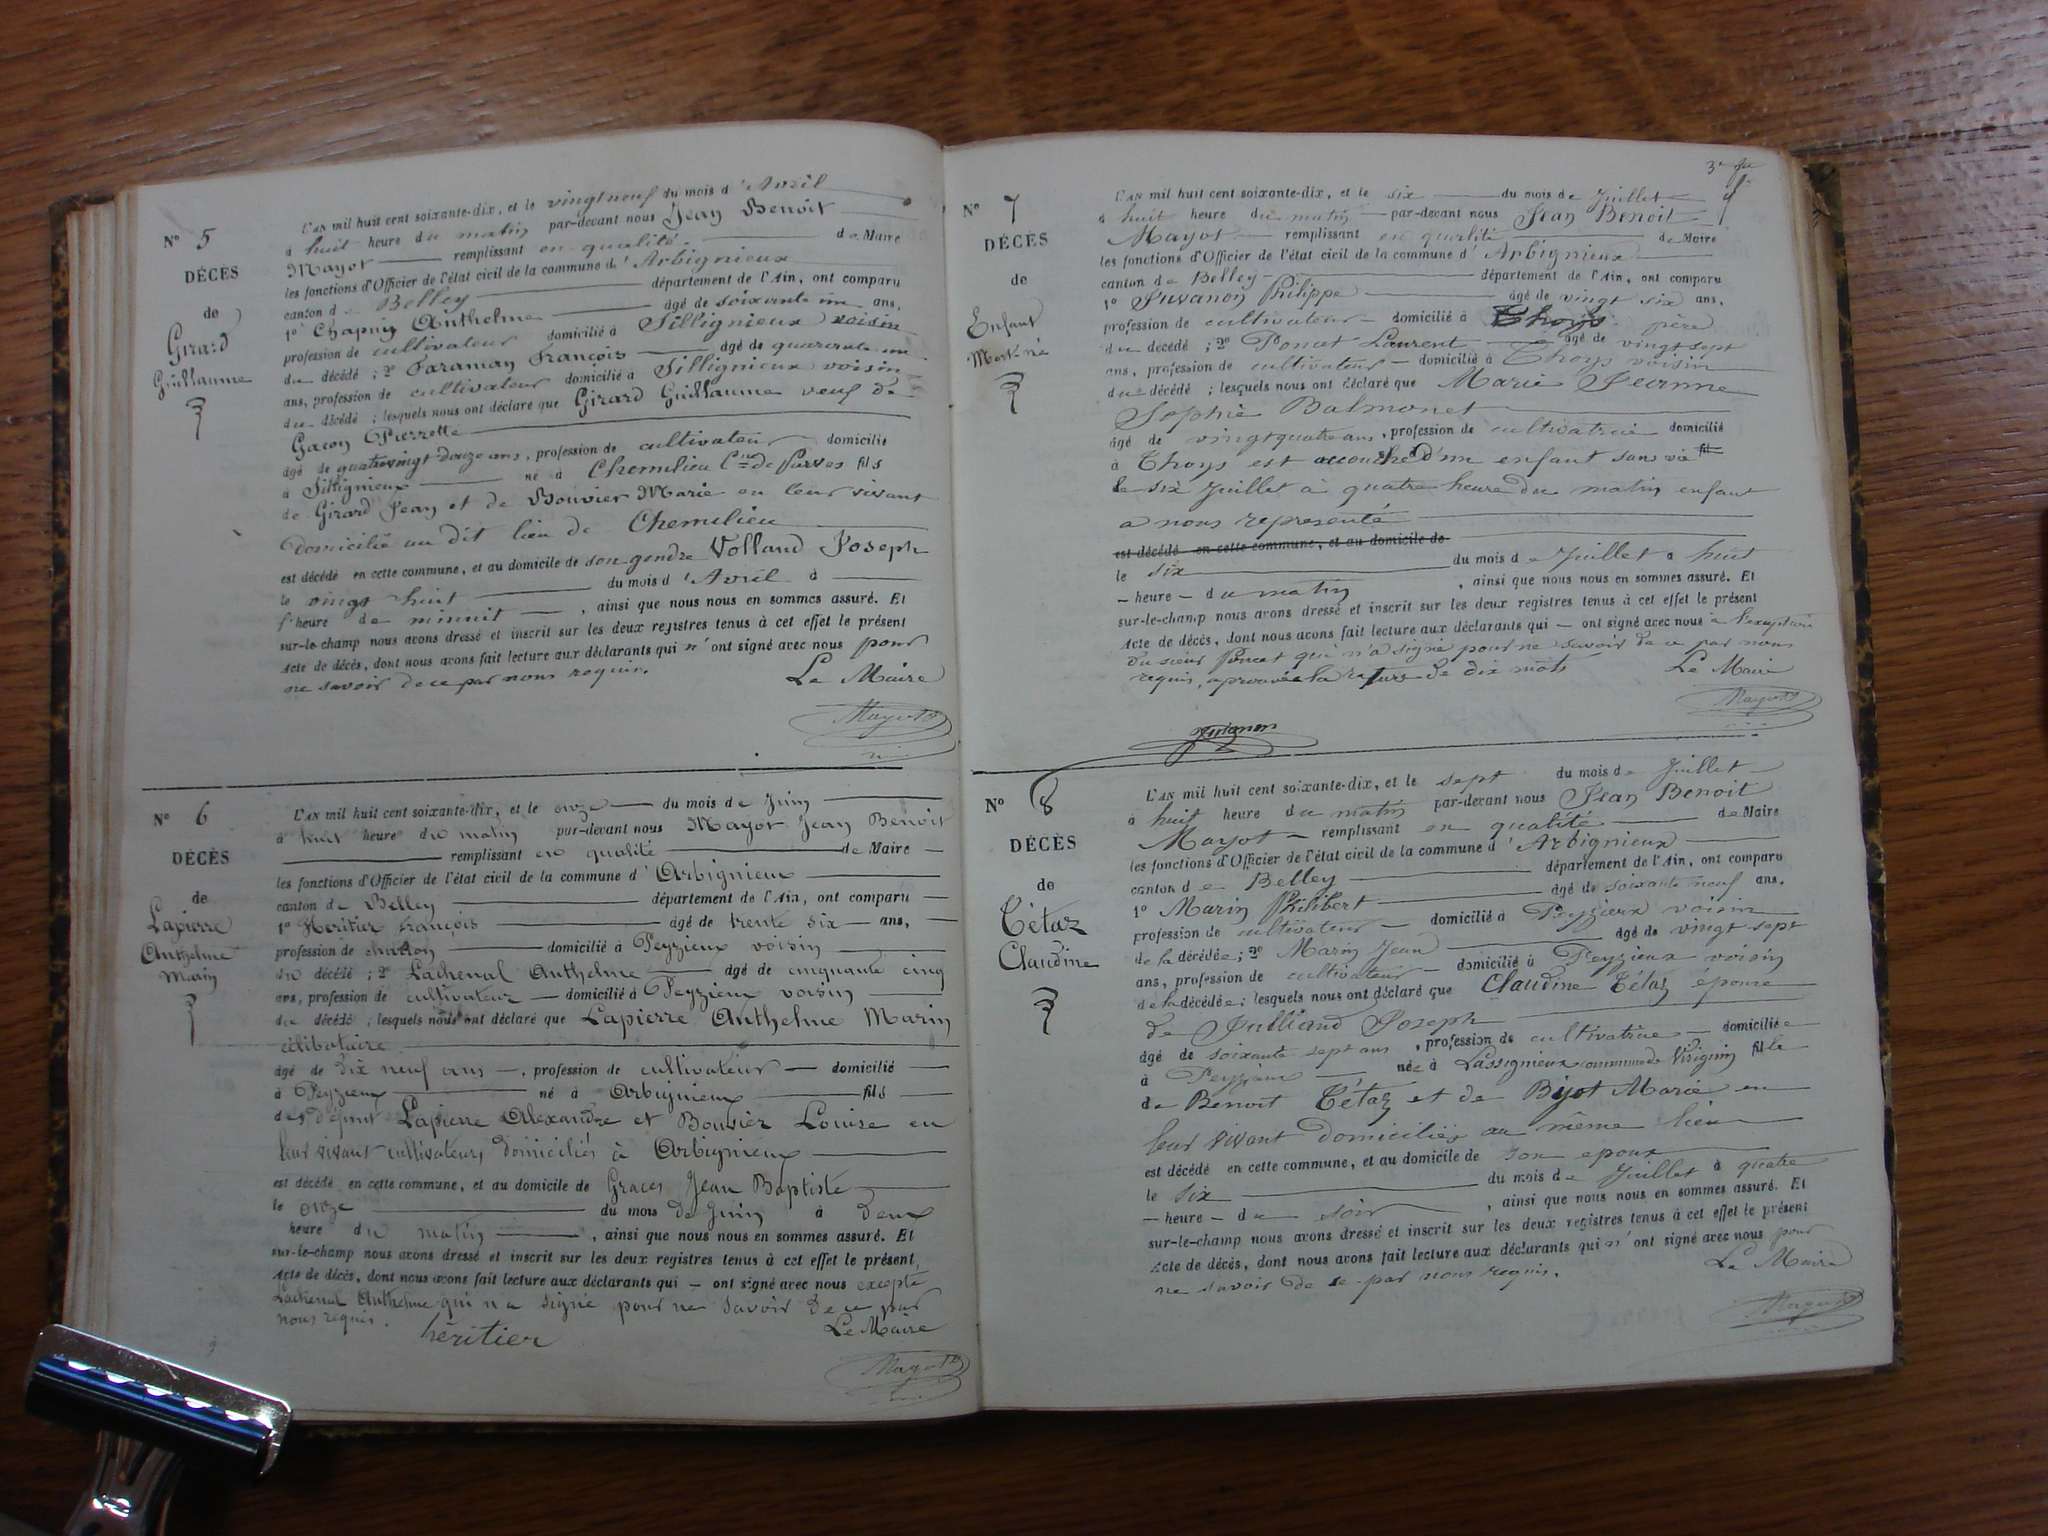 Nº 5
DÉCÈS
de
Girard
Guillaume
L'AN mil huit cent soixante-dix, et le vingt neuf du mois d'Avril
à huit heure du matin par-devant nous Jean Benoit
Mayot remplissant en qualité de Maire
les fonctions d'Officier de l'état civil de la commune d'Arbignieux
canton de Belley département de l'Ain, ont comparu
1º Chapuis Anthelme âgé de soixante un ans,
profession de cultivateur domicilié à Sillignieux voisin
du décédé ; 2º Taraman François âgé de quarante un
ans, profession de cultivateur domicilié à Sillignieux voisin
du décédé ; lesquels nous ont déclaré que Girard Guillaume veuf de
Gacon Pierrette
âgé de quatrevingt douze ans, profession de cultivateur domicilié
à Sillignieux né à Chemilieu Cne de Parves fils
de Girard Jean et de Bouvier Marie en leur vivant
domicilié au dit lieu de Chemilieu
est décédé en cette commune, et au domicile de son gendre Volland Joseph
le vingt huit du mois d'Avril à
l'heure de minuit, ainsi que nous nous en sommes assuré. Et
sur-le-champ nous avons dressé et inscrit sur les deux registres tenus à cet effet le présent
Acte de décès, dont nous avons fait lecture aux déclarants qui n'ont signé avec nous pour
ne savoir de ce par nous requis.
Le Maire
Mayot
Nº 6
DÉCÈS
de
Lapierre
Anthelme
Marin
L'AN mil huit cent soixante-dix, et le onze du mois de Juin
à huit heure du matin par-devant nous Mayot Jean Benoit
remplissant en qualité de Maire
les fonctions d'Officier de l'état civil de la commune d'Arbignieux
canton de Belley département de l'Ain, ont comparu
1º Héritier François âgé de trente six ans,
profession de charron domicilié à Peyzieux voisin
du décédé ; 2º Lachenal Anthelme âgé de cinquante cinq
ans, profession de cultivateur domicilié à Peyzieux voisin
du décédé ; lesquels nous ont déclaré que Lapierre Anthelme Marin
célibataire
âgé de dix neuf ans, profession de cultivateur domicilié
à Peyzieux né à Arbignieux fils
des défunt Lapierre Alexandre et Bouvier Louise en
leur vivant cultivateurs domiciliés à Arbignieux
est décédé en cette commune, et au domicile de Graces Jean Baptiste
le onze du mois de Juin à deux
heure du matin, ainsi que nous nous en sommes assuré. Et
sur-le-champ nous avons dressé et inscrit sur les deux registres tenus à cet effet le présent,
Acte de décès, dont nous avons fait lecture aux déclarants qui ont signé avec nous excepté
Lachenal Anthelme qui n'a signé pour ne savoir de ce par
nous requis.
Le Maire
héritier
Mayot
Nº 7
DÉCÈS
de
Enfant
Mort-né
L'AN mil huit cent soixante-dix, et le six du mois de Juillet
à huit heure du matin par-devant nous Jean Benoit
Mayot remplissant en qualité de Maire
les fonctions d'Officier de l'état civil de la commune d'Arbignieux
canton de Belley département de l'Ain, ont comparu
1º Philippe âgé de vingt six ans,
profession de cultivateur domicilié à Thoys père
du décédé ; 2º Poncet Laurent âgé de vingt sept
ans, profession de cultivateur domicilié à Thoys voisin
du décédé ; lesquels nous ont déclaré que Marie Jeanne
Sophie Balmonet
âgé de vingt quatre ans, profession de cultivatrice domicilié
à Thoys est accouché d'un enfant sans vie fils
le six Juillet à quatre heure du matin enfant
a nous representé
est décédé en cette commune, et au domicile de
le six du mois de Juillet à huit
heure du matin, ainsi que nous nous en sommes assuré. Et
sur-le-champ nous avons dressé et inscrit sur les deux registres tenus à cet effet le présent
Acte de décès, dont nous avons fait lecture aux déclarants qui ont signé avec nous a l'exception
du sieur Poncet qui n'a signé pour ne savoir de ce par nous
requis, aprouvée la rature de dix mots
Le Maire
Mayot
Nº 8
DÉCÈS
de
Tétaz
Claudine
L'AN mil huit cent soixante-dix, et le sept du mois de Juillet
à huit heure du matin par-devant nous Jean Benoit
Mayot remplissant en qualité de Maire
les fonctions d'Officier de l'état civil de la commune d'Arbignieux
canton de Belley département de l'Ain, ont comparu
1º Marin Philibert âgé de soixante neuf ans,
profession de cultivateur domicilié à Peyzieux voisin
de la décédée ; 2º Marin Jean âgé de vingt sept
ans, profession de cultivateur domicilié à Peyzieux voisin
de la décédée ; lesquels nous ont déclaré que Claudine Tétaz épouse
de Julliand Joseph
âgé de soixante sept ans, profession de cultivatrice domiciliée
à Peyzieux née à Lassignieux commune de Virignin fille
de Benoit Tétaz et de Bijot Marie en
leur vivant domiciliés au même lieu
est décédé en cette commune, et au domicile de son epoux
le six du mois de Juillet à quatre
heure du soir, ainsi que nous nous en sommes assuré. Et
sur-le-champ nous avons dressé et inscrit sur les deux registres tenus à cet effet le présent
Acte de décès, dont nous avons fait lecture aux déclarants qui n'ont signé avec nous pour
ne savoir de ce par nous requis.
Le Maire
Mayot